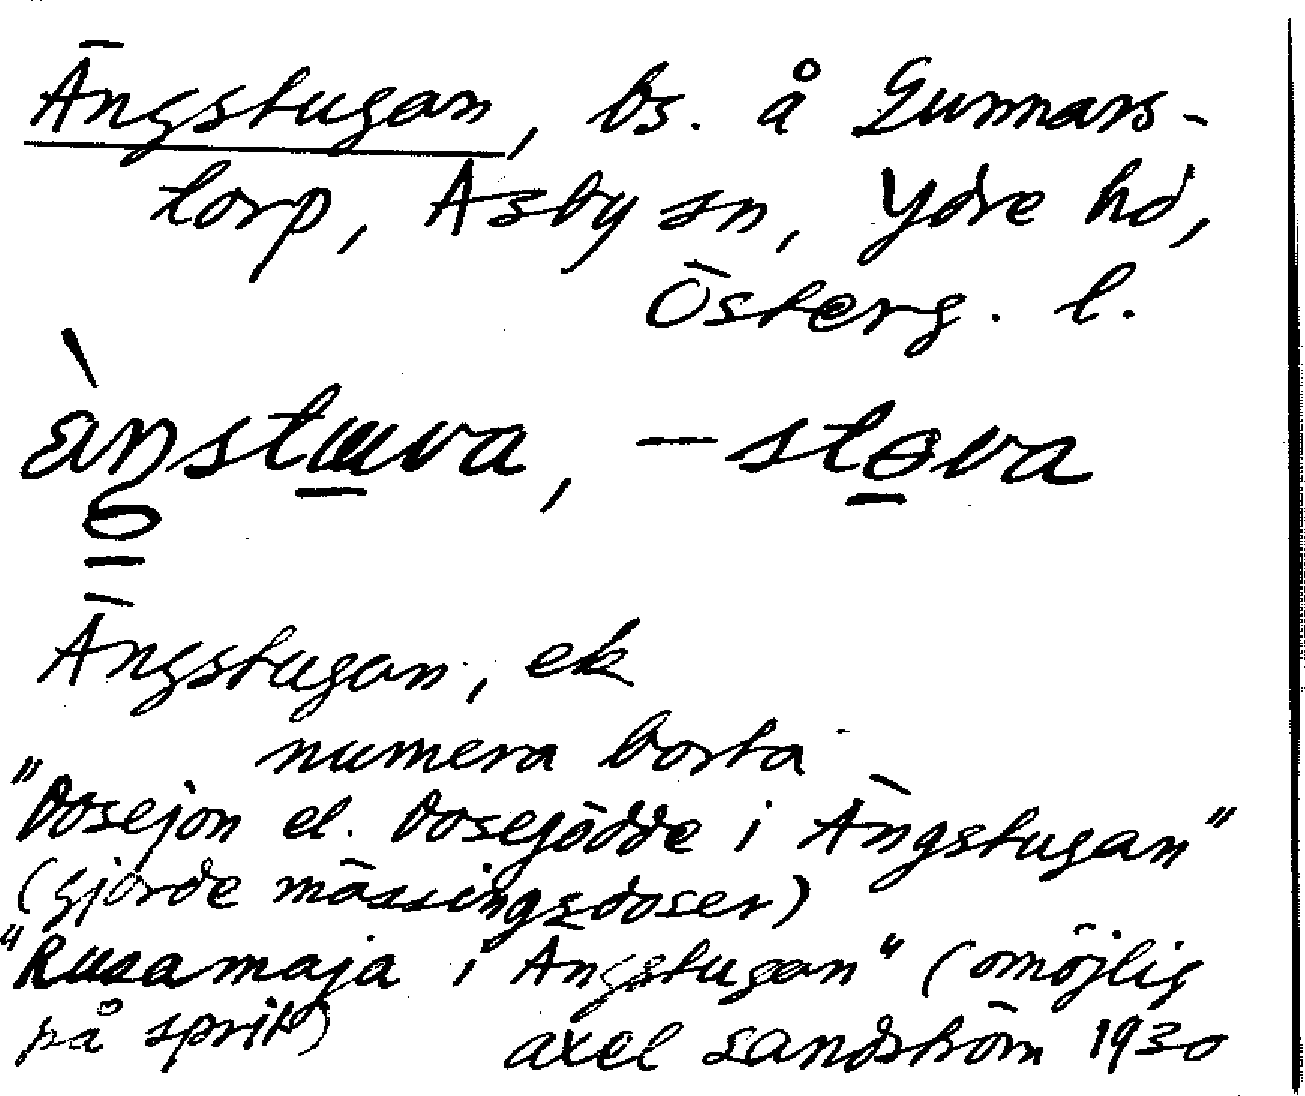 Ängstugan, bs. å Gunnars-
torp, Asby sn, Ydre hd,
Österg. l.
àŋstuva, –stova
Ängstugan, ek
numera borta
"Dosejon el. Dosejödde i Ängstugan"
(gjorde mässingsdoser)
"Rusamaja i Ängstugan" (omöjlig
på sprit) axel sandström 1930